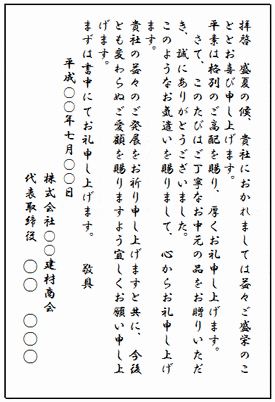 拝啓　盛夏の候、貴社におかれましては益々ご盛栄のこ
ととお喜び申し上げます。
平素は格別のご高配を賜り、厚くお礼申し上げます。
　さて、このたびはご丁寧なお中元の品をお贈りいただ
き、誠にありがとうございました。
このようなお気遣いを賜りまして、心からお礼申し上げ
ます。
貴社の益々のご発展をお祈り申し上げますと共に、今後
とも変わらぬご愛顧を賜りますよう宜しくお願い申し上
げます。
まずは書中にてお礼申し上げます。　敬具
平成〇〇年七月〇〇日
株式会社〇〇建材商会
代表取締役　〇〇　〇〇〇